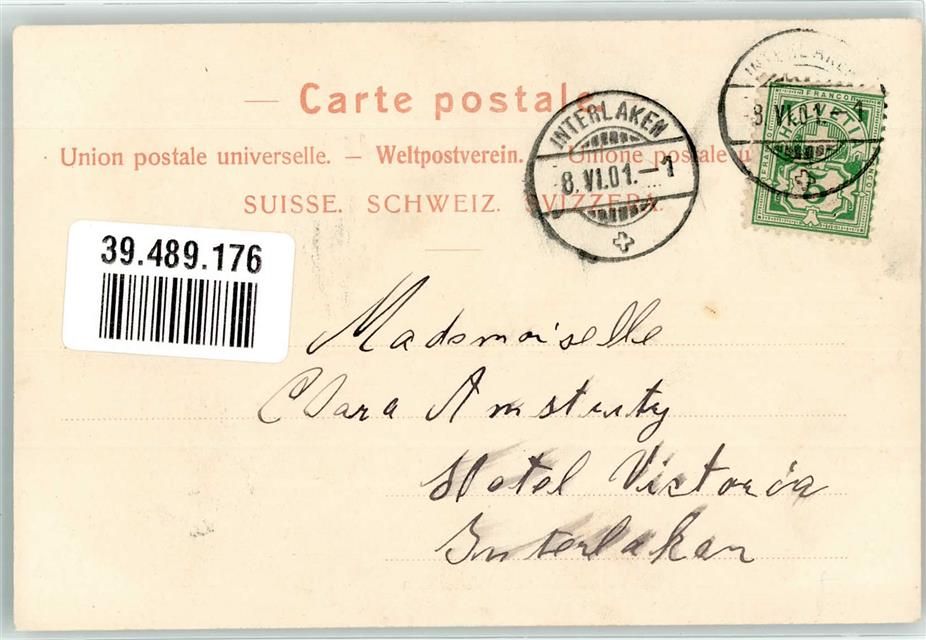 Carte postale.
Union postale universelle. — Weltpostverein. — Unione postale u
SUISSE. SCHWEIZ. SVIZZERA.
INTERLAKEN
8.VI.01.–1
INTERLAKEN
8.VI.01. 1
FRANCO
HELVETIA
5
39.489.176
Madsmoiselle
Clara Amstutz
Hotel Victoria
Interlaken